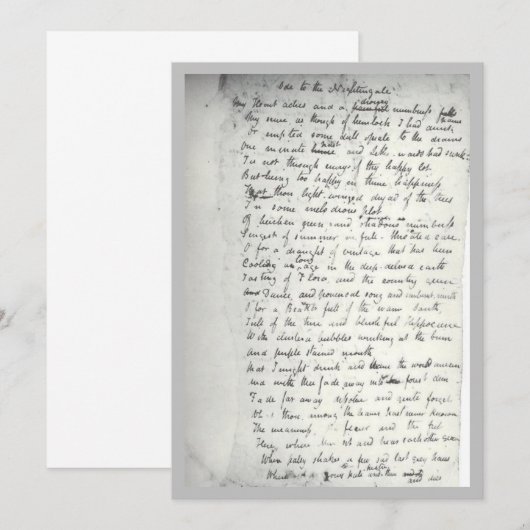 Ode to the Nightingale
drowsy
My Heart aches and a painful numbness falls
My sense as though of hemlock I had drunk
Or emptied some dull opiate to the drains
past
One minute and Lethe-wards had sunk
Tis not through envy of thy happy lot
But being too happy in thine happiness
That thou light-winged dryad of the trees
In some melodious plot
Of beechen green and shadows numberless
Singest of summer in full-throated ease
O for a draught of vintage that has been
long
Cooling an age in the deep-delved earth
Tasting of Flora and the country green
And Dance, and provencal song and sunburnt mirth
O for a Beaker full of the warm South,
Full of the true and blushful Hippocrene
With cluster'd bubbles winking at the brim
And purple stained mouth
That I might drink and leave the world unseen
And with thee fade away into forest dim
Fade far away dissolve and quite forget
What thou among the leaves hast never known
The weariness, the fever and the fret
Here, where Men sit and hear each other groan
Where palsy shakes a few sad last grey hairs
Where youth grows pale and thin and dies